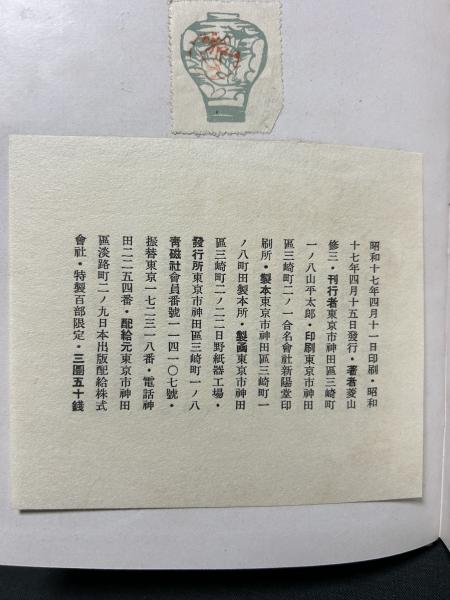 昭和十七年四月十一日印刷・昭和
十七年四月十五日發行・著者菱山
修三・刊行者東京市神田區三崎町
一ノ八山平太郎・印刷東京市神田
區三崎町二ノ一合名會社新陽堂印
刷所・製本東京市神田區三崎町一
ノ八町田製本所・製画東京市神田
區三崎町二ノ二二日野紙器工場・
發行所東京市神田區三崎町一ノ八
靑磁社會員番號一一四一〇七號・
振替東京一七二三一八番・電話神
田二二五四番・配給元東京市神田
區淡路町二ノ九日本出版配給株式
會社・特製百部限定・三圓五十錢